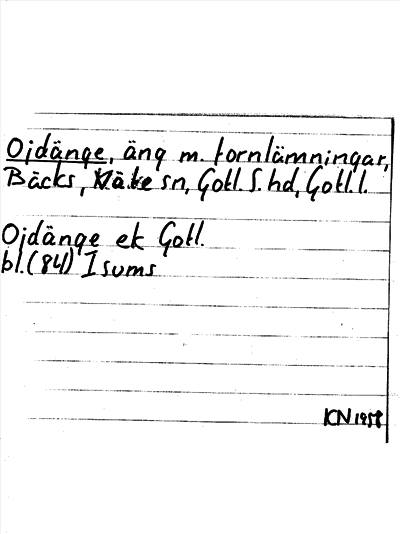 Ojdänge, äng m. fornlämningar,
Bäcks, Väte sn, Gotl. S. hd, Gotl. l.
Ojdänge ek Gotl.
bl. (84) Isums
KN 1958